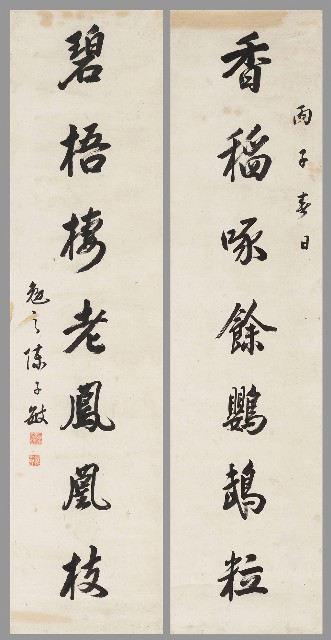 丙子春日
香稻啄餘鸚鵡粒
碧梧棲老鳳凰枝
勉之陳子敏